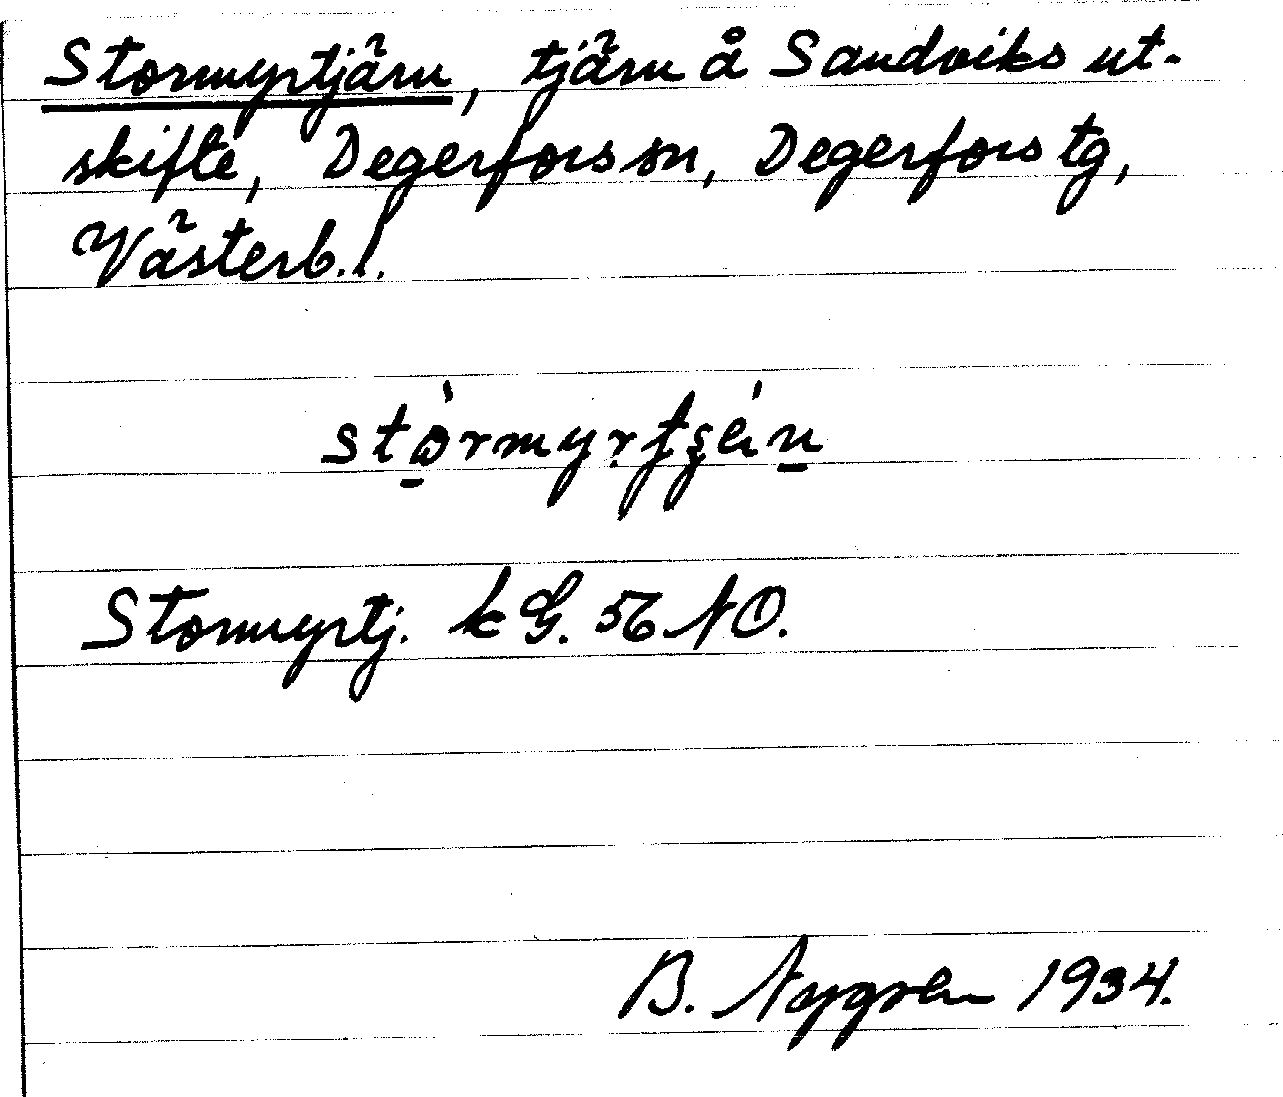 Stormyrtjärn, tjärn å Sandviks ut-
skifte, Degerfors sn, Degerfors tg,
Västerb. l.
Stormyrtj. kG. 56 NO.
B. Nygren 1934.